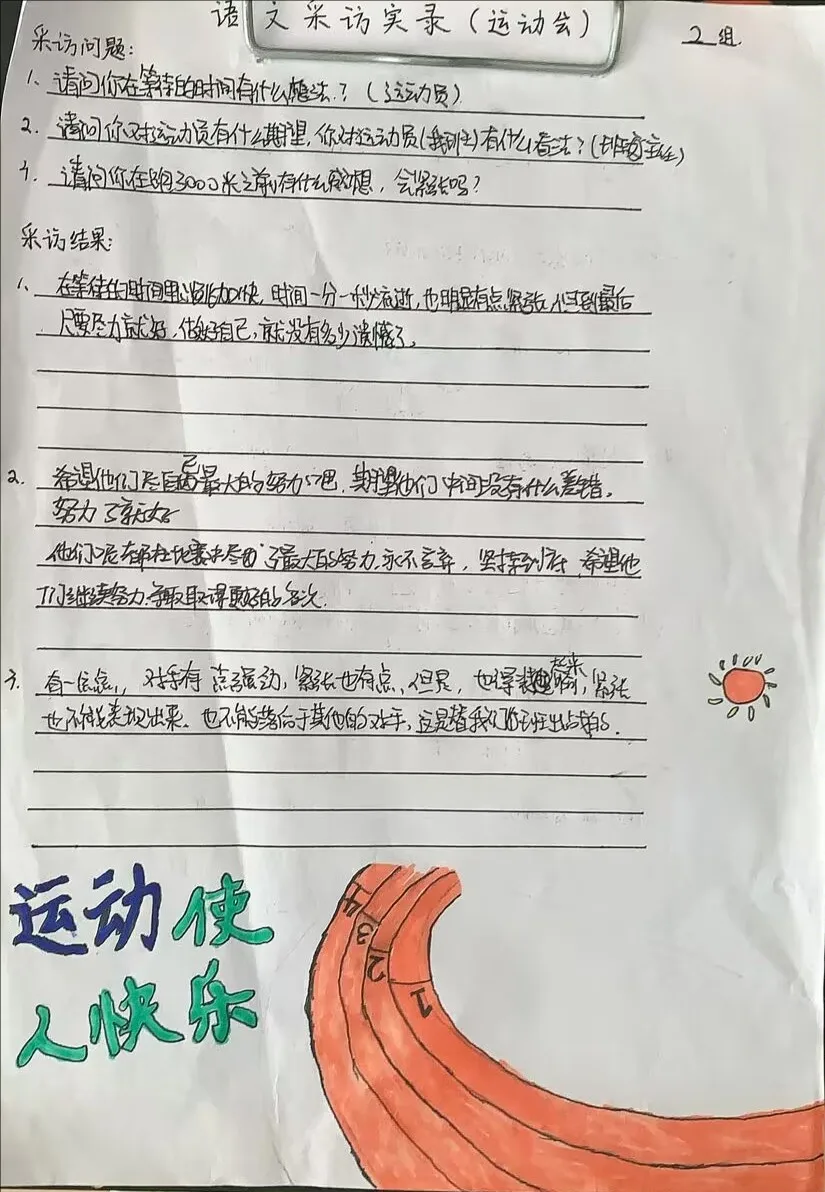 语文采访实录(运动会)
2组.
采访问题:
1、请问你在等待的时间有什么想法?(运动员)
2.请问你对运动员有什么期望,你对运动员(我班)有什么看法?(班主任)
3.请问你在跑3000米之前有什么感想,会紧张吗?
采访结果:
1、在等待的时间里心跳加快,时间一分一秒流逝,也明显有点紧张,但到最后
只要尽力就好,做好自己,就没有多少遗憾了。
2.希望他们尽自己最大的努力吧,期望他们中间没有什么差错。
努力了就好
他们在比赛中尽了最大的努力.永不言弃,坚持到底,希望他
们继续努力.争取取得更好的名次.
3.有一点点,对手有点强劲,紧张也有点,但是,也得表现出来,紧张
也不能表现出来.也不能落后于其他的对手,这是替我们班出战的.
运动使
人快乐
4
3
2
1